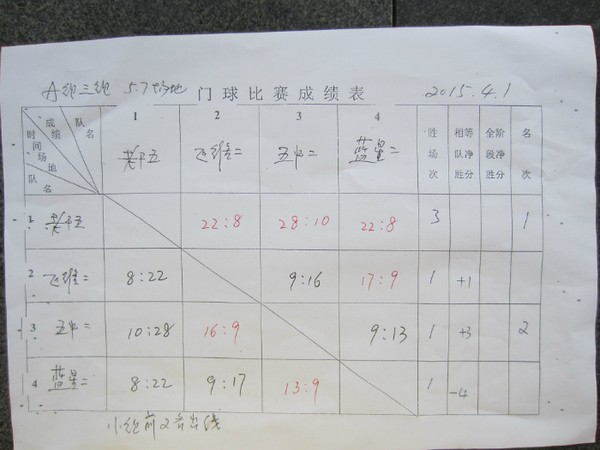 A组三组 5.7场地 门球比赛成绩表 2015.4.1
成绩 队名 时间 场地 队名
1 2 3 4 胜场次 相等队净胜分 全阶段净胜分 名次
老干五 飞雄二 五中二 蓝星二
1 老干五 22:8 28:10 22:8 3 1
2 飞雄二 8:22 9:16 17:9 1 +1
3 五中二 10:28 16:9 9:13 1 +3 2
4 蓝星二 8:22 9:17 13:9 1 -4
小组前2名出线